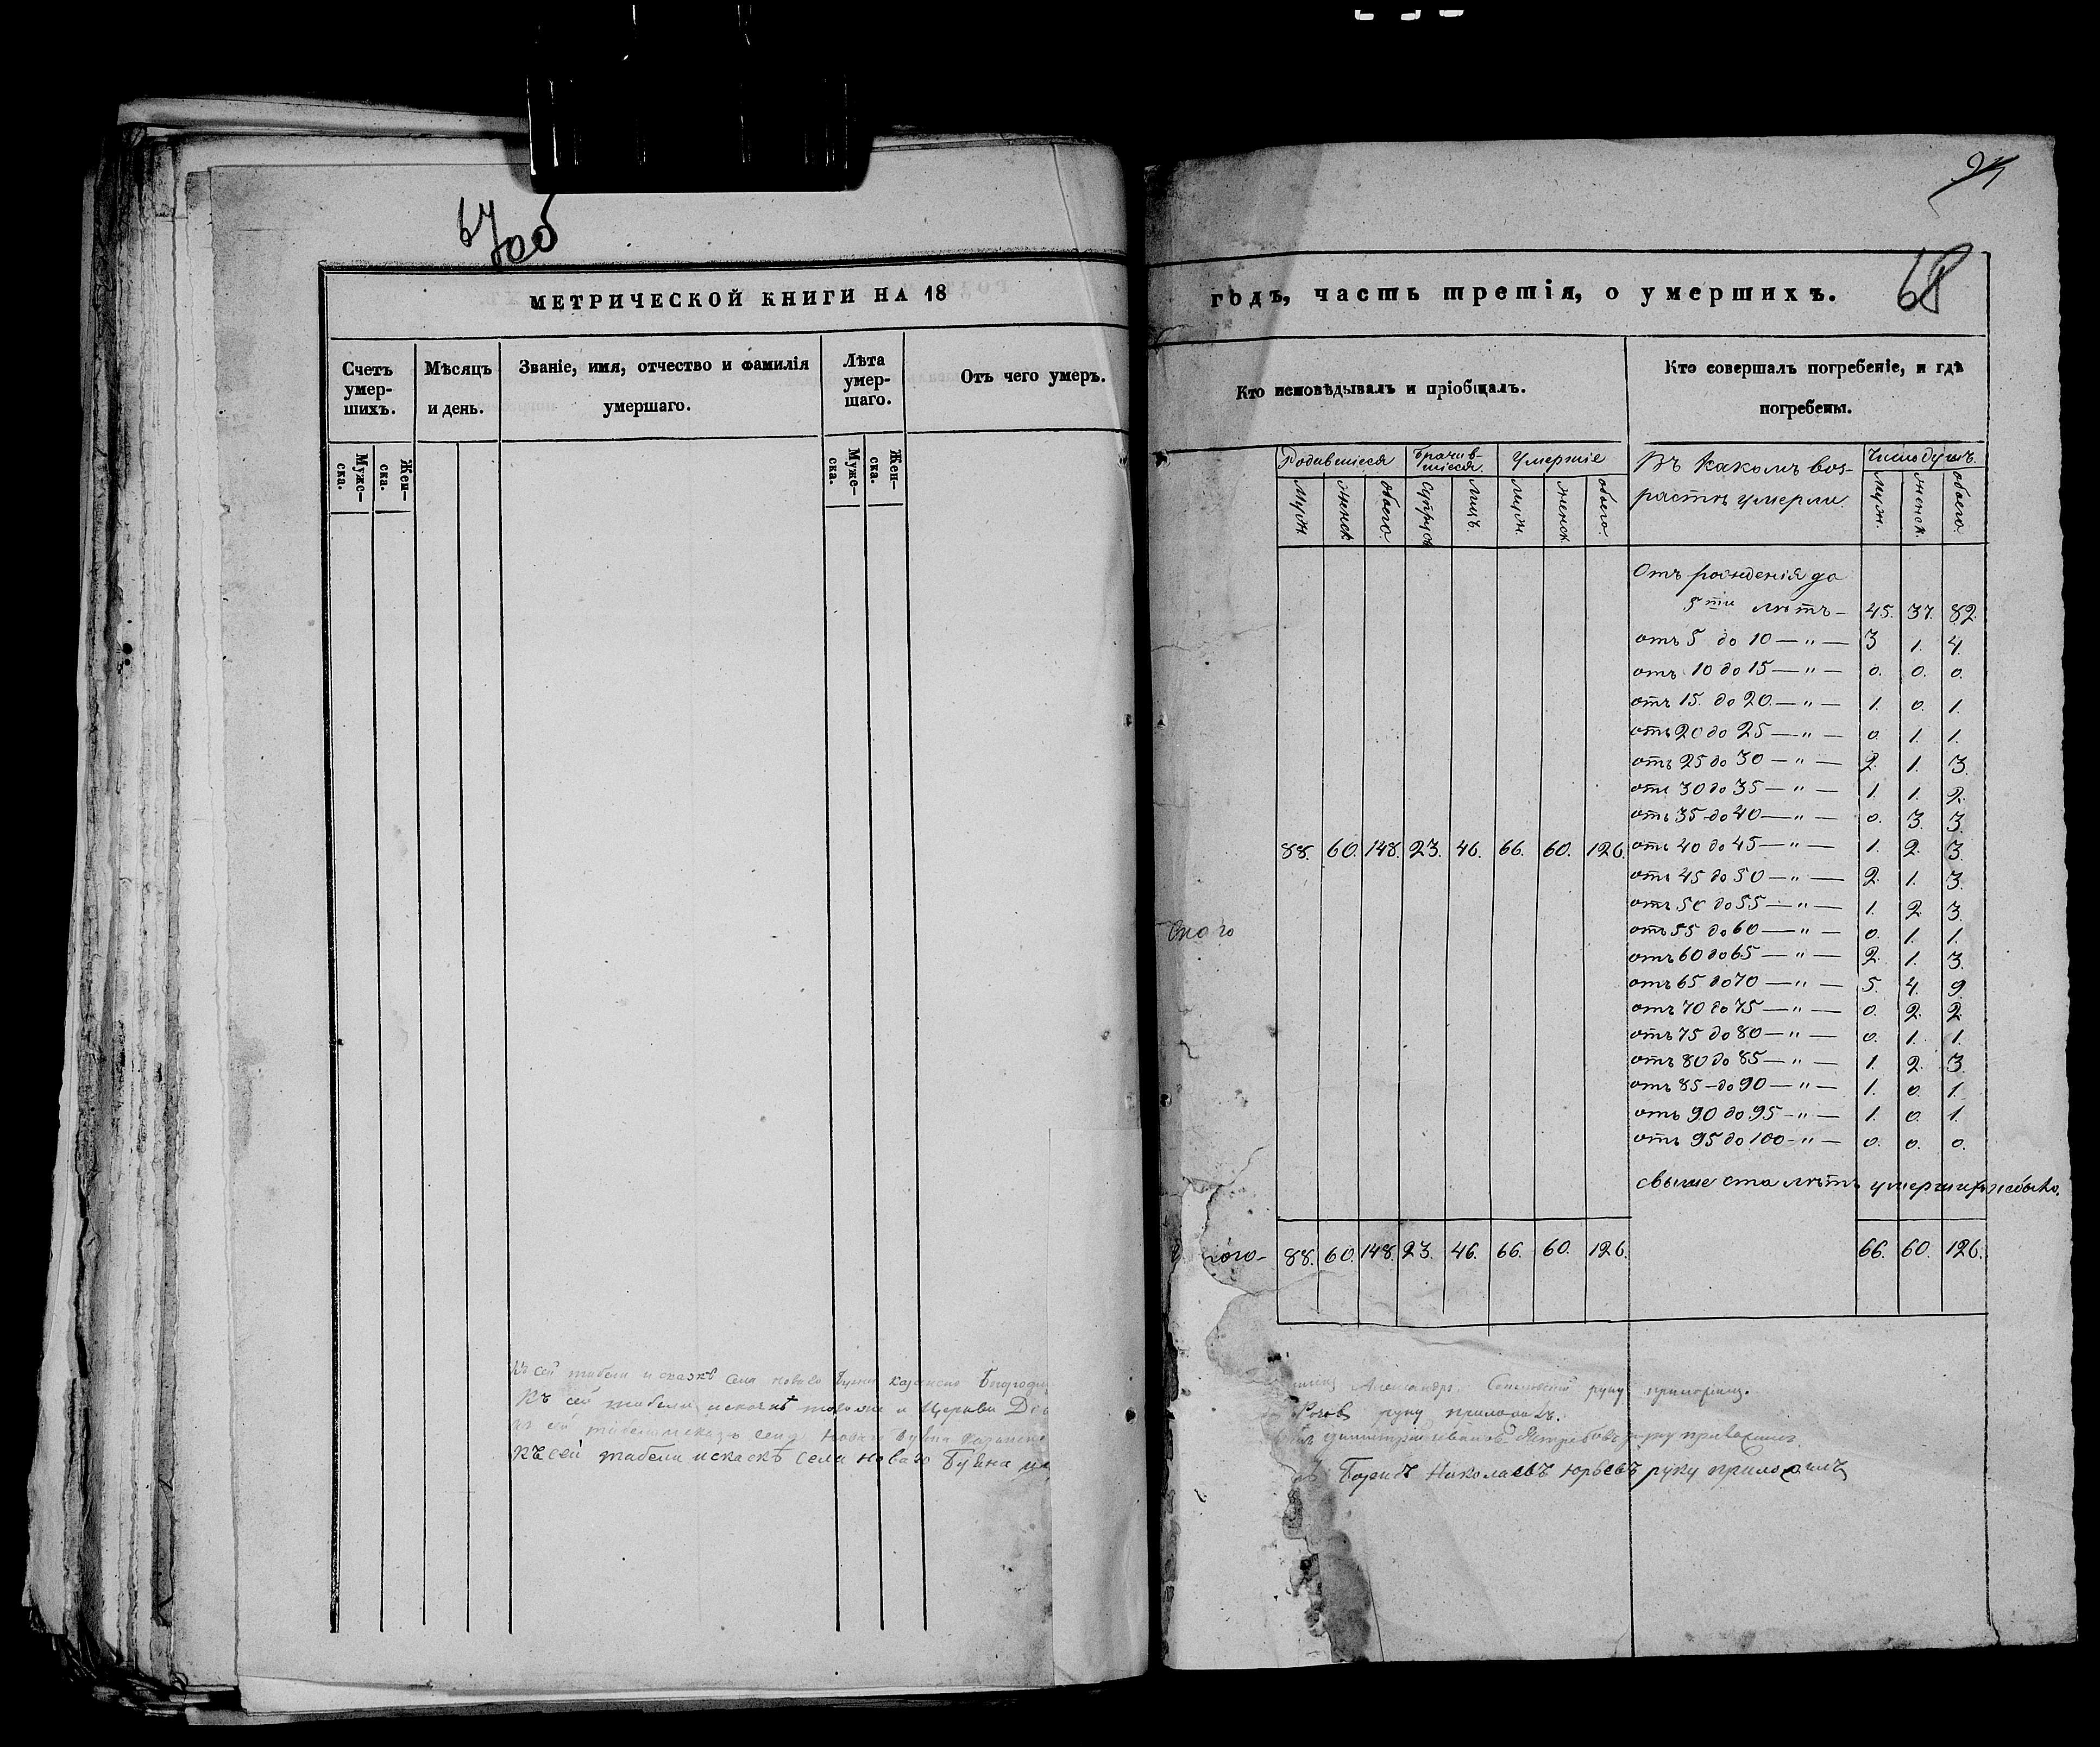 67об
МЕТРИЧЕСКОЙ КНИГИ НА 18
Счетъ умер-шихъ.
Мѣсяцъ и день.
Званіе, имя, отчество и фамилія умершаго.
Лѣта умер-шаго.
Отъ чего умеръ.
Муже-ска.
Жен-ска.
Муже-ска.
Жен-ска.
Къ сей табели и сказкѣ села Новаго Буяна
Къ сей табели и и Церкви
Къ сей табели
Къ сей табели и скаскѣ села новаго Буяна
68
годъ, часть третія, о умершихъ.
Кто исповѣдывалъ и пріобщалъ.
Кто совершалъ погребеніе, и гдѣ погребены.
Родившіеся
Брачив-шіеся.
Умершіе
Въ какомъ воз-
растѣ умерли.
Число душъ.
Муж.
женск.
обоего.
супруж.
лицъ.
Муж.
женск.
обоего.
муж.
женск.
обоего.
Отъ рожденія до
5ти лѣтъ — 45. 37. 82.
отъ 5 до 10 — " — 3 1. 4.
отъ 10 до 15 — " — 0. 0. 0.
отъ 15. до 20. — " — 1. 0. 1.
отъ 20 до 25 — " — 0. 1. 1.
отъ 25 до 30 — " — 2. 1. 3.
отъ 30 до 35 — " — 1. 1. 2.
отъ 35 до 40 — " — 0. 3. 3.
88. 60. 148. 23. 46. 66. 60. 126. отъ 40 до 45 — " — 1. 2. 3.
отъ 45 до 50 — " — 2. 1. 3.
отъ 50 до 55 — " — 1. 2. 3.
отъ 55 до 60 — " — 0. 1. 1.
отъ 60 до 65 — " — 2. 1. 3.
отъ 65 до 70 — " — 5. 4. 9.
отъ 70 до 75 — " — 0. 2. 2.
отъ 75 до 80 — " — 0. 1. 1.
отъ 80 до 85 — " — 1. 2. 3.
отъ 85 до 90 — " — 1. 0. 1.
отъ 90 до 95 — " — 1. 0. 1.
отъ 95 до 100 — " — 0. 0. 0.
свыше ста лѣтъ умершихъ небыло.
88. 60. 148. 23. 46. 66. 60. 126. 66. 60. 126.
Александръ руку приложилъ.
руку приложилъ.
Димитрій Ивановъ руку приложилъ.
Николаевъ Юрьевъ руку приложилъ